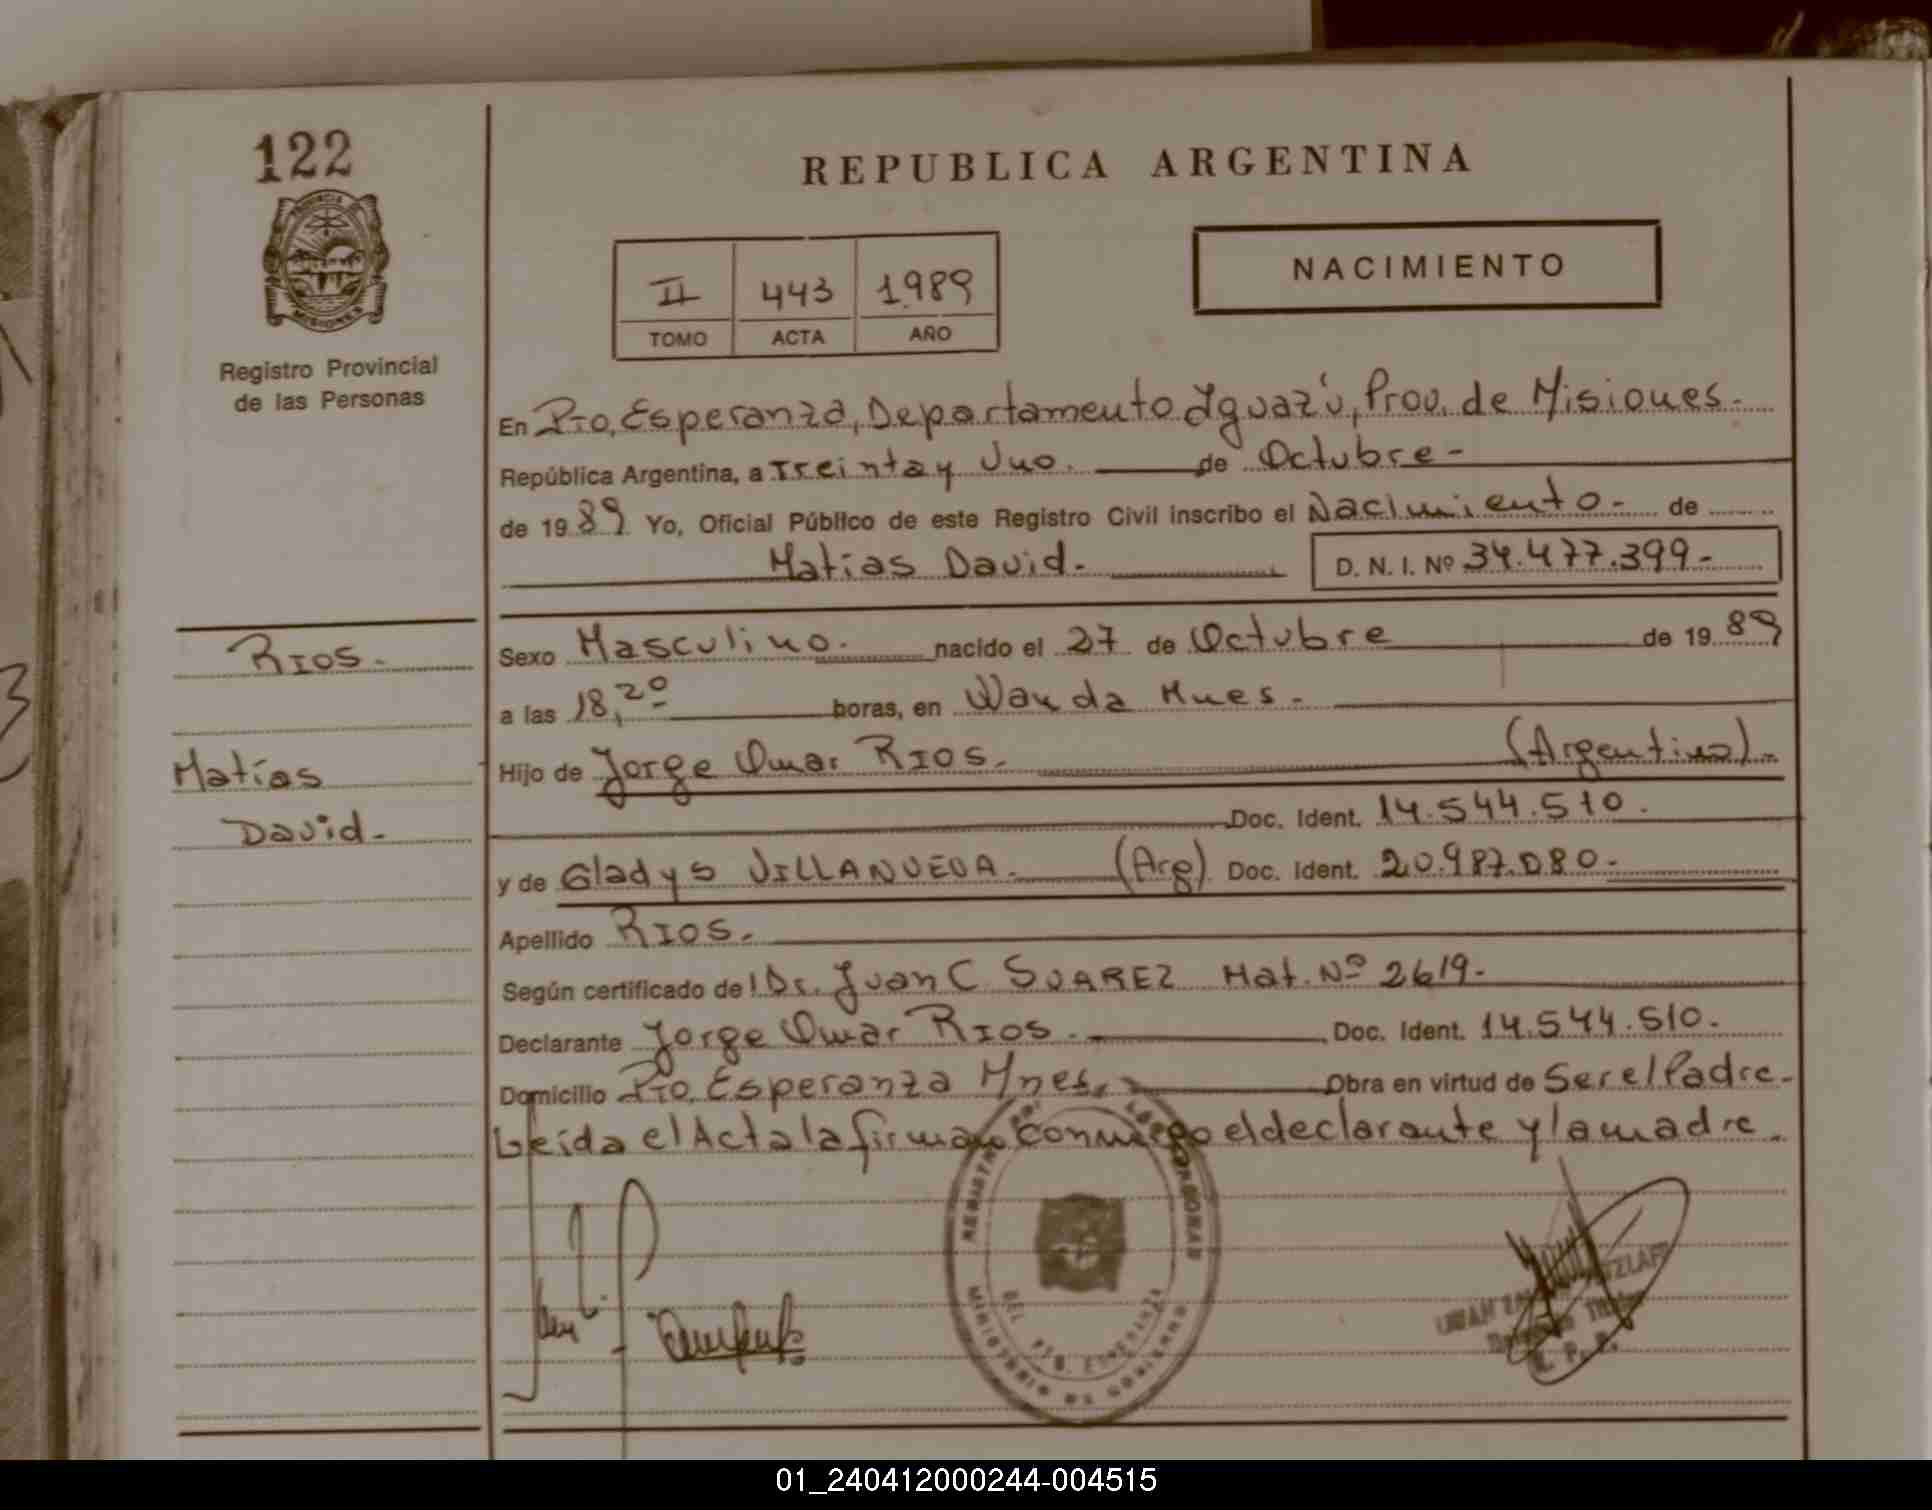 122
REPUBLICA ARGENTINA
NACIMIENTO
II 443 1989
TOMO ACTA AÑO
Registro Provincial
de las Personas
En Pto. Esperanza, Departamento Iguazú, Prov. de Misiones.
República Argentina, a Treinta y Uno. de Octubre -
de 19 89 Yo, Oficial Público de este Registro Civil inscribo el Nacimiento - de
Matías David. D. N. I. Nº 34.477.399-
Rios.
Matías
David-
Sexo Masculino. nacido el 27 de Octubre de 19 89
a las 18,20 horas, en Wanda Mnes.
Hijo de Jorge Omar RIOS. (Argentino)-
Doc. Ident. 14.544.510.
y de Gladys VILLANUEVA. (Arg) Doc. Ident. 20.987.080.
Apellido RIOS.
Según certificado del Dr. Juan C. SUAREZ Mat. Nº 2619-
Declarante Jorge Omar RIOS. Doc. Ident. 14.544.510.
Domicilio Pto. Esperanza Mnes. Obra en virtud de Ser el Padre-
Leída el Acta la firman conmigo el declarante y la madre.
01_240412000244-004515